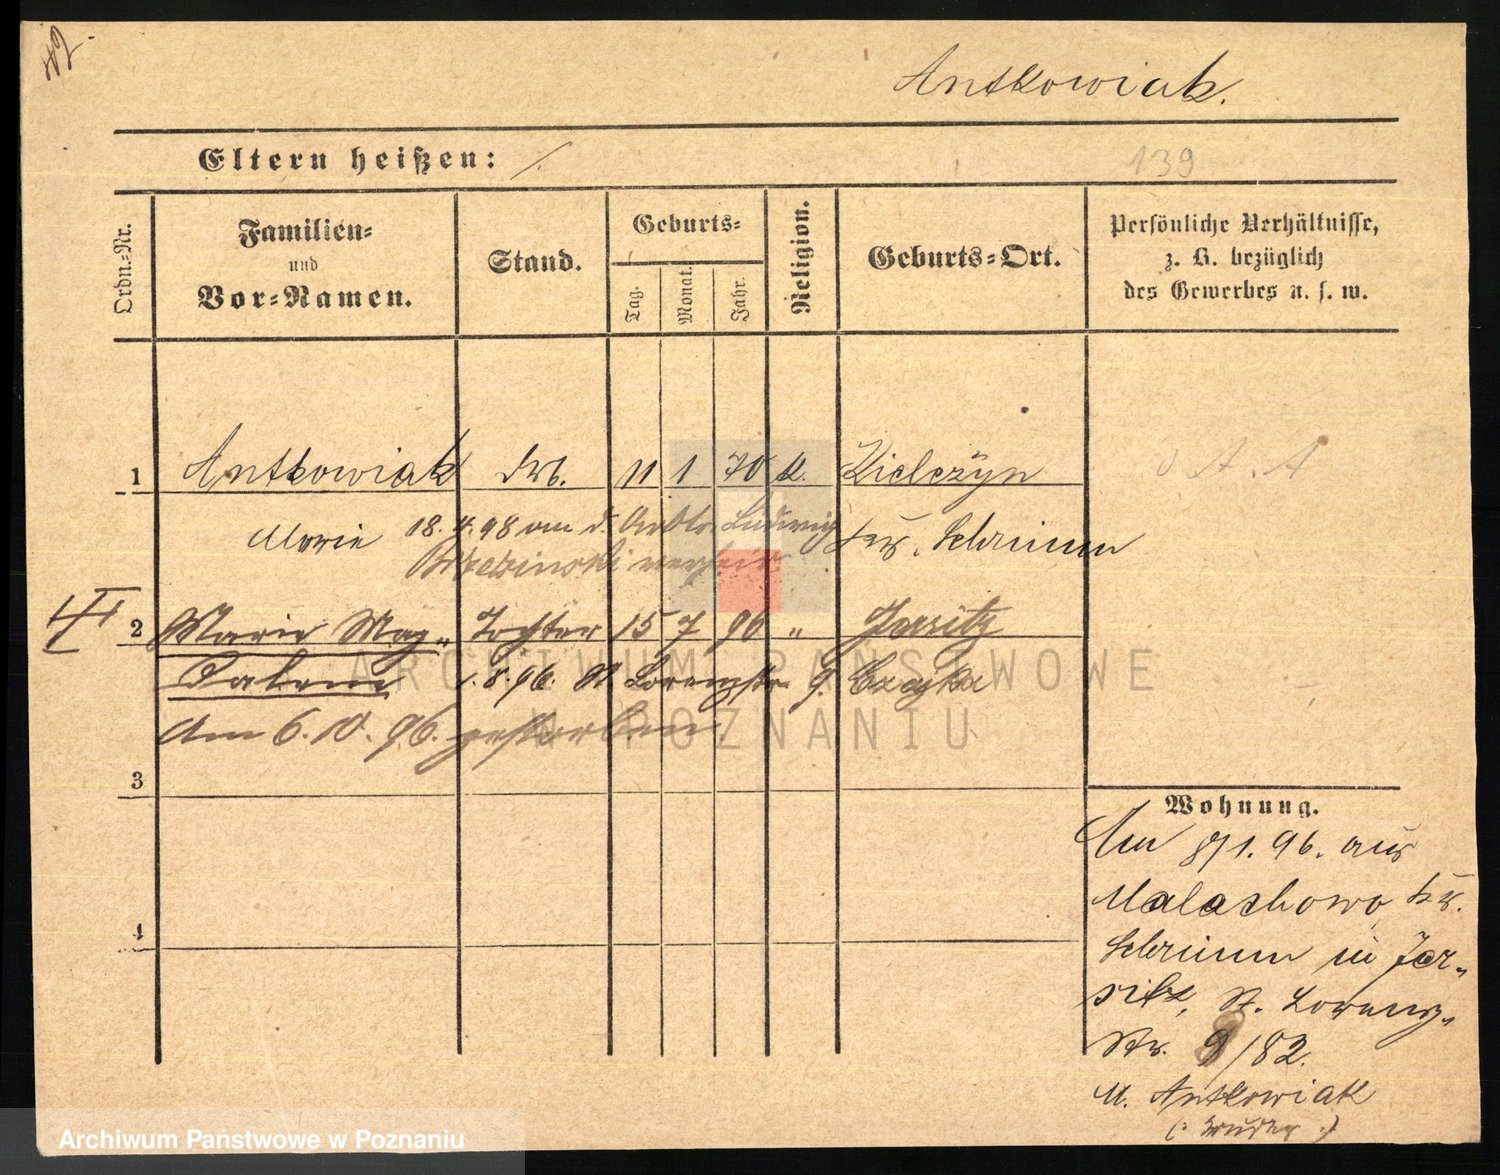 Antkowiak.
Eltern heißen: /.
139
Ordn.-Nr.
Familien-
und
Vor-Namen.
Stand.
Geburts-
Tag.
Monat.
Jahr.
Religion.
Geburts-Ort.
Persönliche Verhältnisse,
z. B. bezüglich
des Gewerbes u. s. w.
1 Antkowiak Arb. 11 1 70 k. Kielczyn
Marie 18. 4. 98 am d. Arbtr. Ludwig Krs. Schrimm
2 Marie Mag- Tochter 15 7 96 " Jersitz
dalena 1.8.96. St. Lorenzstr. 9.
Am 6. 10. 96. gestorben.
3
4
Wohnung.
Am 8/1. 96. aus
Malachowo, Krs.
Schrimm in Jer-
sitz, St. Lorenz-
Str. 9/82.
M. Antkowiak
(: Bruder :)
ARCHIWUM PAŃSTWOWE
W POZNANIU
Archiwum Państwowe w Poznaniu